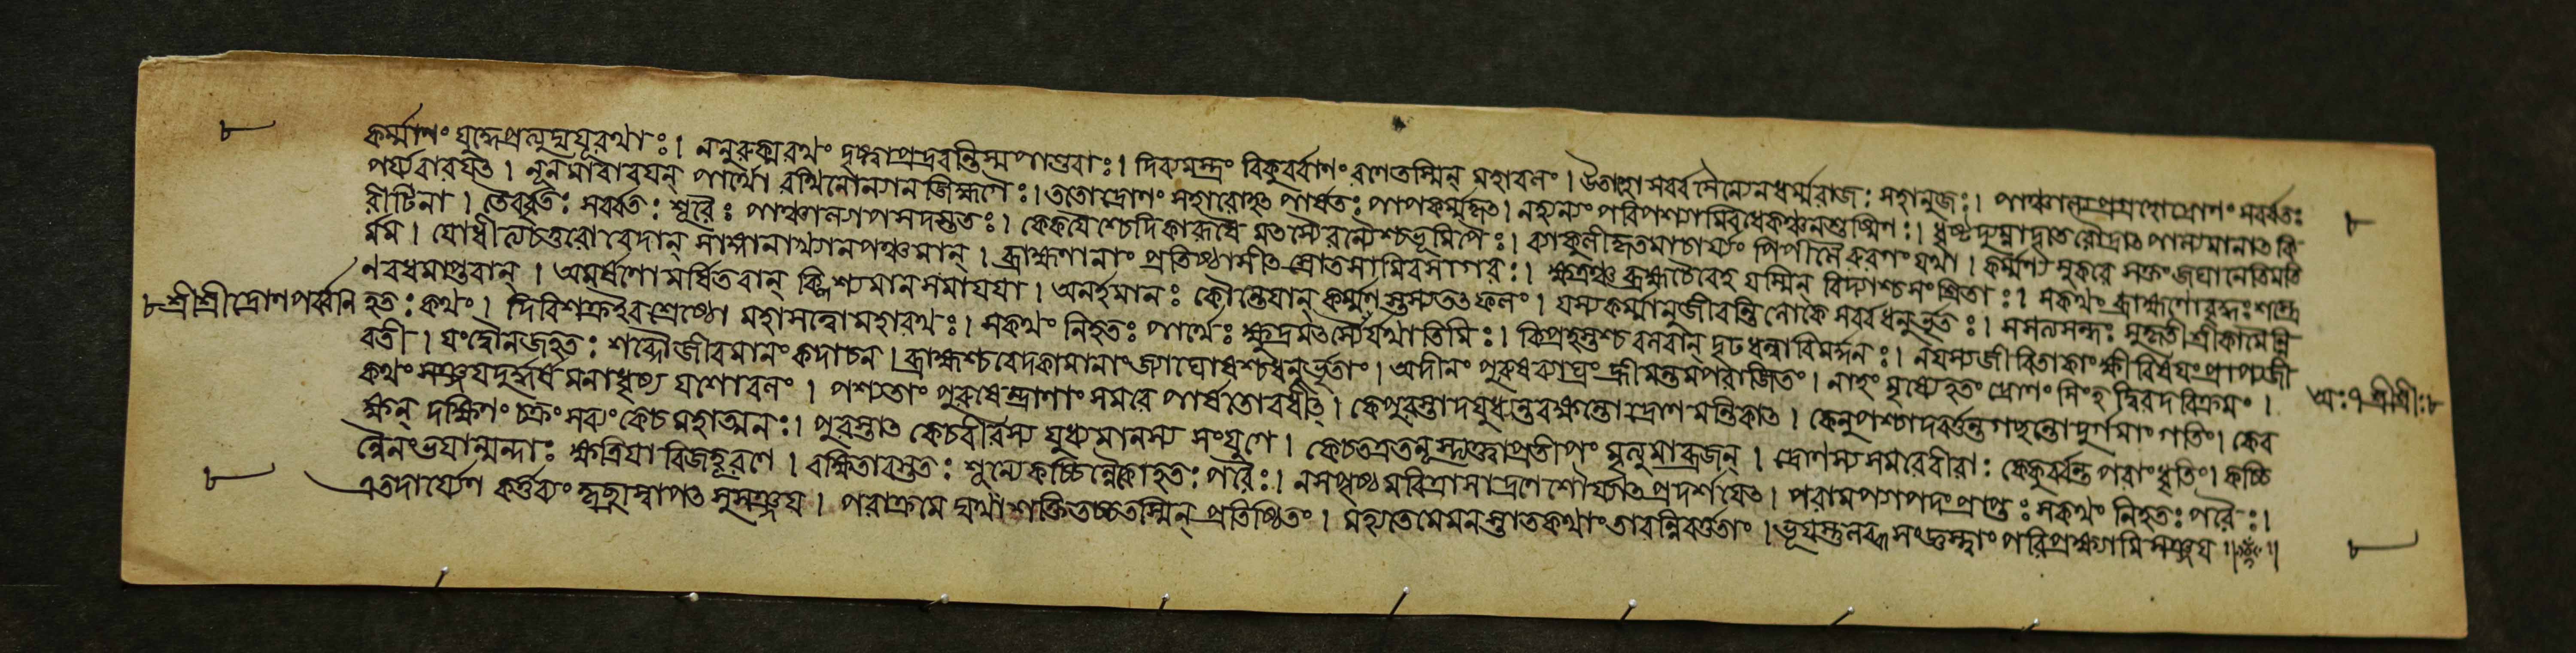 কর্ম্মাণং যুদ্ধেপ্রত্যুদ্যযূরথাঃ। ননুরুক্মরথং দৃষ্ট্বাপ্রদ্রবন্তিস্মপাণ্ডবাঃ। দিব্যমস্ত্রং বিকুর্ব্বাণং রণেতস্মিন্ মহাবলং। উতাহো সর্ব্বসৈন্যেনধর্ম্মরাজঃ সহানুজঃ। পাঞ্চাল্যপ্রগ্রহোদ্রোণং সর্ব্বতঃ
পর্য্যবারযৎ। নূনমাবারযন্ পার্থো রথিনোন্যানজিহ্মগৈঃ। ততোদ্রোণং সমারোহৎ পার্ষতঃ পাপকর্ম্মকৃৎ। নহ্যন্যং পরিপশ্যামিবধেকঞ্চনশুষ্মিণঃ। ধৃষ্টদ্যুম্নাদৃতেরৌদ্রাৎ পাল্যমানাৎ কি
রীটিনা। তৈর্বৃতঃ সর্ব্বতঃ শূরৈঃ পাঞ্চাল্যাপসদস্ততঃ। কেকযৈশ্চেদিকারূষৈ র্মৎস্যৈরন্যৈশ্চভূমিপৈঃ। ব্যাকুলীকৃতমাচার্য্যং পিপীলৈরুরগং যথা। কর্ম্মণ্যসুকরে সক্তং জঘানেতিমতি
র্ম্মম। যোধীত্যচতুরোবেদান্ সাঙ্গানাখ্যানপঞ্চমান্। ব্রাহ্মণানাং প্রতিষ্ঠাসীৎ স্রোতসামিবসাগরঃ। ক্ষত্রঞ্চ ব্রহ্মচৈবেহ যস্মিন্ বিদ্যাশ্চসংশ্রিতাঃ। সকথং ব্রাহ্মণোবৃদ্ধঃশস্ত্রে
ণবধমাপ্তবান্। অমর্ষণোমর্ষিতবান্ ক্লিশ্যমানসমাযযা। অনর্হমানঃ কৌন্তেযান্ কর্ম্মণস্তস্যতৎ ফলং। যস্যকর্ম্মানুজীবন্তি লোকে সর্ব্বধনুর্ভৃতঃ। সসত্যসন্ধঃ সুকৃতী শ্রীকামৈর্নি
৮ শ্রীশ্রীদ্রোণপর্ব্বনি
হতঃ কথং। দিবিশক্রইবশ্রেষ্ঠো মহাসত্ত্বোমহারথঃ। সকথং নিহতঃ পার্থৈঃ ক্ষুদ্রমৎস্যৈর্যথাতিমিঃ। ক্ষিপ্রহস্তশ্চ বলবান্ দৃঢধন্বাবিমর্দ্দনঃ। নযস্যজীবিতাকাংক্ষী বিষযংপ্রাপ্যজী
বতী। যংদ্বৌনজহতঃ শব্দৌজীবমানং কদাচন। ব্রাহ্মশ্চবেদকামানাংজ্যাঘোষশ্চধনুর্ভৃতাং। অদীনং পুরুষব্যাঘ্রং হ্রীমন্তমপরাজিতং। নাহং মৃষ্যেহতং দ্রোণং সিংহদ্বিরদবিক্রমং।
কথং সঞ্জযদুর্দ্ধর্ষ মনাধৃষ্য যশোবলং। পশ্যতাং পুরুষেন্দ্রাণাং সমরে পার্ষতোবধীৎ। কেপুরস্তাদযুধ্যন্তরক্ষন্তো দ্রোণমন্তিকাৎ। কেনুপশ্চাদবর্ত্তন্তগচ্ছন্তোদুর্গমাং গতিং। কের
অঃ৭ শ্রীশ্রীঃ৮
ক্ষন্ দক্ষিণং চক্রং সব্যং কেচমহাত্মনঃ। পুরস্তাৎ কেচবীরস্য যুধ্যমানস্য সংযুগে। কেচতত্রতনূস্ত্যক্ত্বাপ্রতীপং মৃত্যুমাব্রজন্। দ্রোণস্য সমরেবীরাঃ কেকুর্ব্বন্ত পরাংধৃতিং। কচ্চি
ন্নৈনংভযান্মন্দাঃ ক্ষত্রিযা বিজহূরণে। রক্ষিতারস্ততঃ শূন্যেকচ্চিন্নৈকোহতঃ পরৈঃ। নসপৃষ্ঠমরিত্রাসাদ্রণেশৌর্য্যাৎ প্রদর্শযেৎ। পরামপ্যাপদংপ্রাপ্তঃ সকথং নিহতঃ পরৈঃ।
এতদার্য্যেণ কর্ত্তব্যং কৃচ্ছ্রাস্বাপৎ সুসঞ্জয। পরাক্রমে যথাশক্তিতচ্চতস্মিন্ প্রতিষ্ঠিতং। মুহ্যতেমেমনস্তাতকথাংতাবন্নিবর্ত্ততাং। ভূযস্তুলব্ধসংজ্ঞস্ত্বাং পরিপ্রক্ষ্যামিসঞ্জয ॥